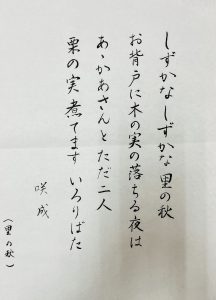 しずかな しずかな 里の秋
お背戸に木の実の落ちる夜は
あゝかあさんとただ二人
栗の実 煮てます いろりばた
咲成
（里の秋）